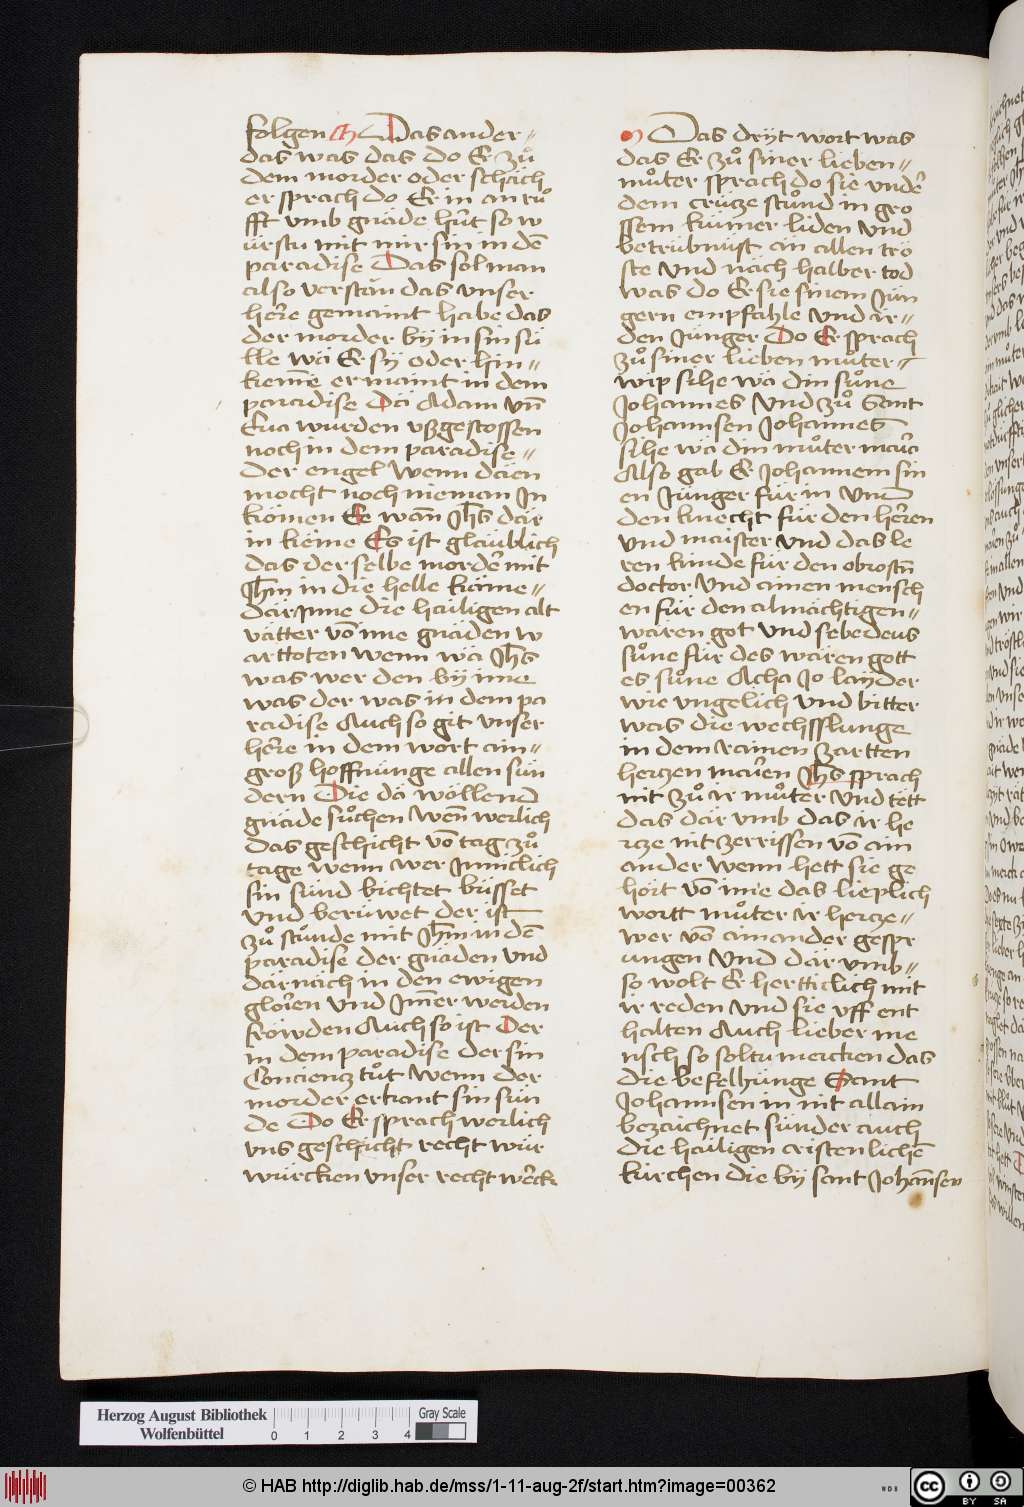 folgen Das ander⸗
das was das do Er zuͦ
dem morder oder schäch
er sprach do Er in an ruͦ
fft vmb gnäde hüt so w
ürstu mit mir sin in dē
paradise Das sol man
also verstän das vnser
here gemaint habe das
der morder bÿ in sin sü
lle wä Er sÿ oder hin⸗
kieme er maint in dem
paradise Dä Adam vn̄
Eua wurden vßgestossen
noch in dem paradise⸗
der engel wenn däen
mocht noch nieman In
komen Ee wan̄ Jhs där
in kieme Es ist gläublich
das der selbe morder mit
Jhm in die helle käme⸗
där Inne die hailigen alt
vätter vō ime gnäden w
arttoten wenn wä Jhs
was wer den bÿ ime
was der was in dem pa
radise Auch so git vnser
here in dem wort ain⸗
groß hoffnünge allen sün
dern Die dä wöllend
gnäde suͦchen wen̄ werlich
das geschicht vō tag zuͦ
tage wenn wer Inniclich
sin sünd bichtet büsset
vnd berüwet der ist
zuͦ stuͦnde mit Jhm in dē
paradise der gnäden vnd
därnäch in den ewigen
glorien vnd Jm̄er werden
fröwden Auch so ist Der
in dem paradise der sin
Concienz tuͦt wenn der
morder erkant sin sün
de Do Er sprach werlich
vns geschicht recht wür
würcken vnser recht werck
Das dryt wort was
das Er zuͦ siner lieben⸗
muͦter sprach do sie vnder
dem crütze stuͦnd in gro
ssem kümer liden vnd
betrübnüst än allen trö
ste vnd näch halber tod
was do Er sie sinem Jün
gern empfahle vnd ir⸗
den Jünger Do Er sprach
zuͦ siner lieben muͦter⸗
wip sihe wä din suͦne
Johannes vnd zuͦ Sant
Johannsen Johannes
sihe wä din muͦter maria
Also gab Er Johannem sin
en Jünger für in vnd
den knecht für den herren
vnd maister vnd das le
ren kinde für den obrostn̄
doctor vnd ainen mensch
en für den almächtigen⸗
wären got vnd sebedeus
suͦne für des wären gott
es suͦne Acha Jo läyder
wie vngelich vnd bitter
was die wechsslunge
in dem rainen zartten
hertzen marien Jhs sprach
nit zuͦ ir muͦter vnd tett
das där vmb das ir he
rcze nit zerrissen vō ain
ander wenn hett sie ge
hört vō ime das lieplich
wortt muͦter ir hercze⸗
wer vō ainander gespr
ungen vnd där vmb⸗
so wolt Er herttic lich mit
ir reden vnd sie vff ent
halten Auch lieber me
nsch so soltu mercken das
die befelhünge Sant
Johannsen in nit allain
bezaichnet sünder auch
die häiligen cristenlichē
kürchen die bÿ sant Johan̄sen
Herzog August Bibliothek
Wolfenbüttel
0 1 2 3 4
Gray Scale
© HAB http://diglib.hab.de/mss/1-11-aug-2f/start.htm?image=00362
WDB
cc BY SA